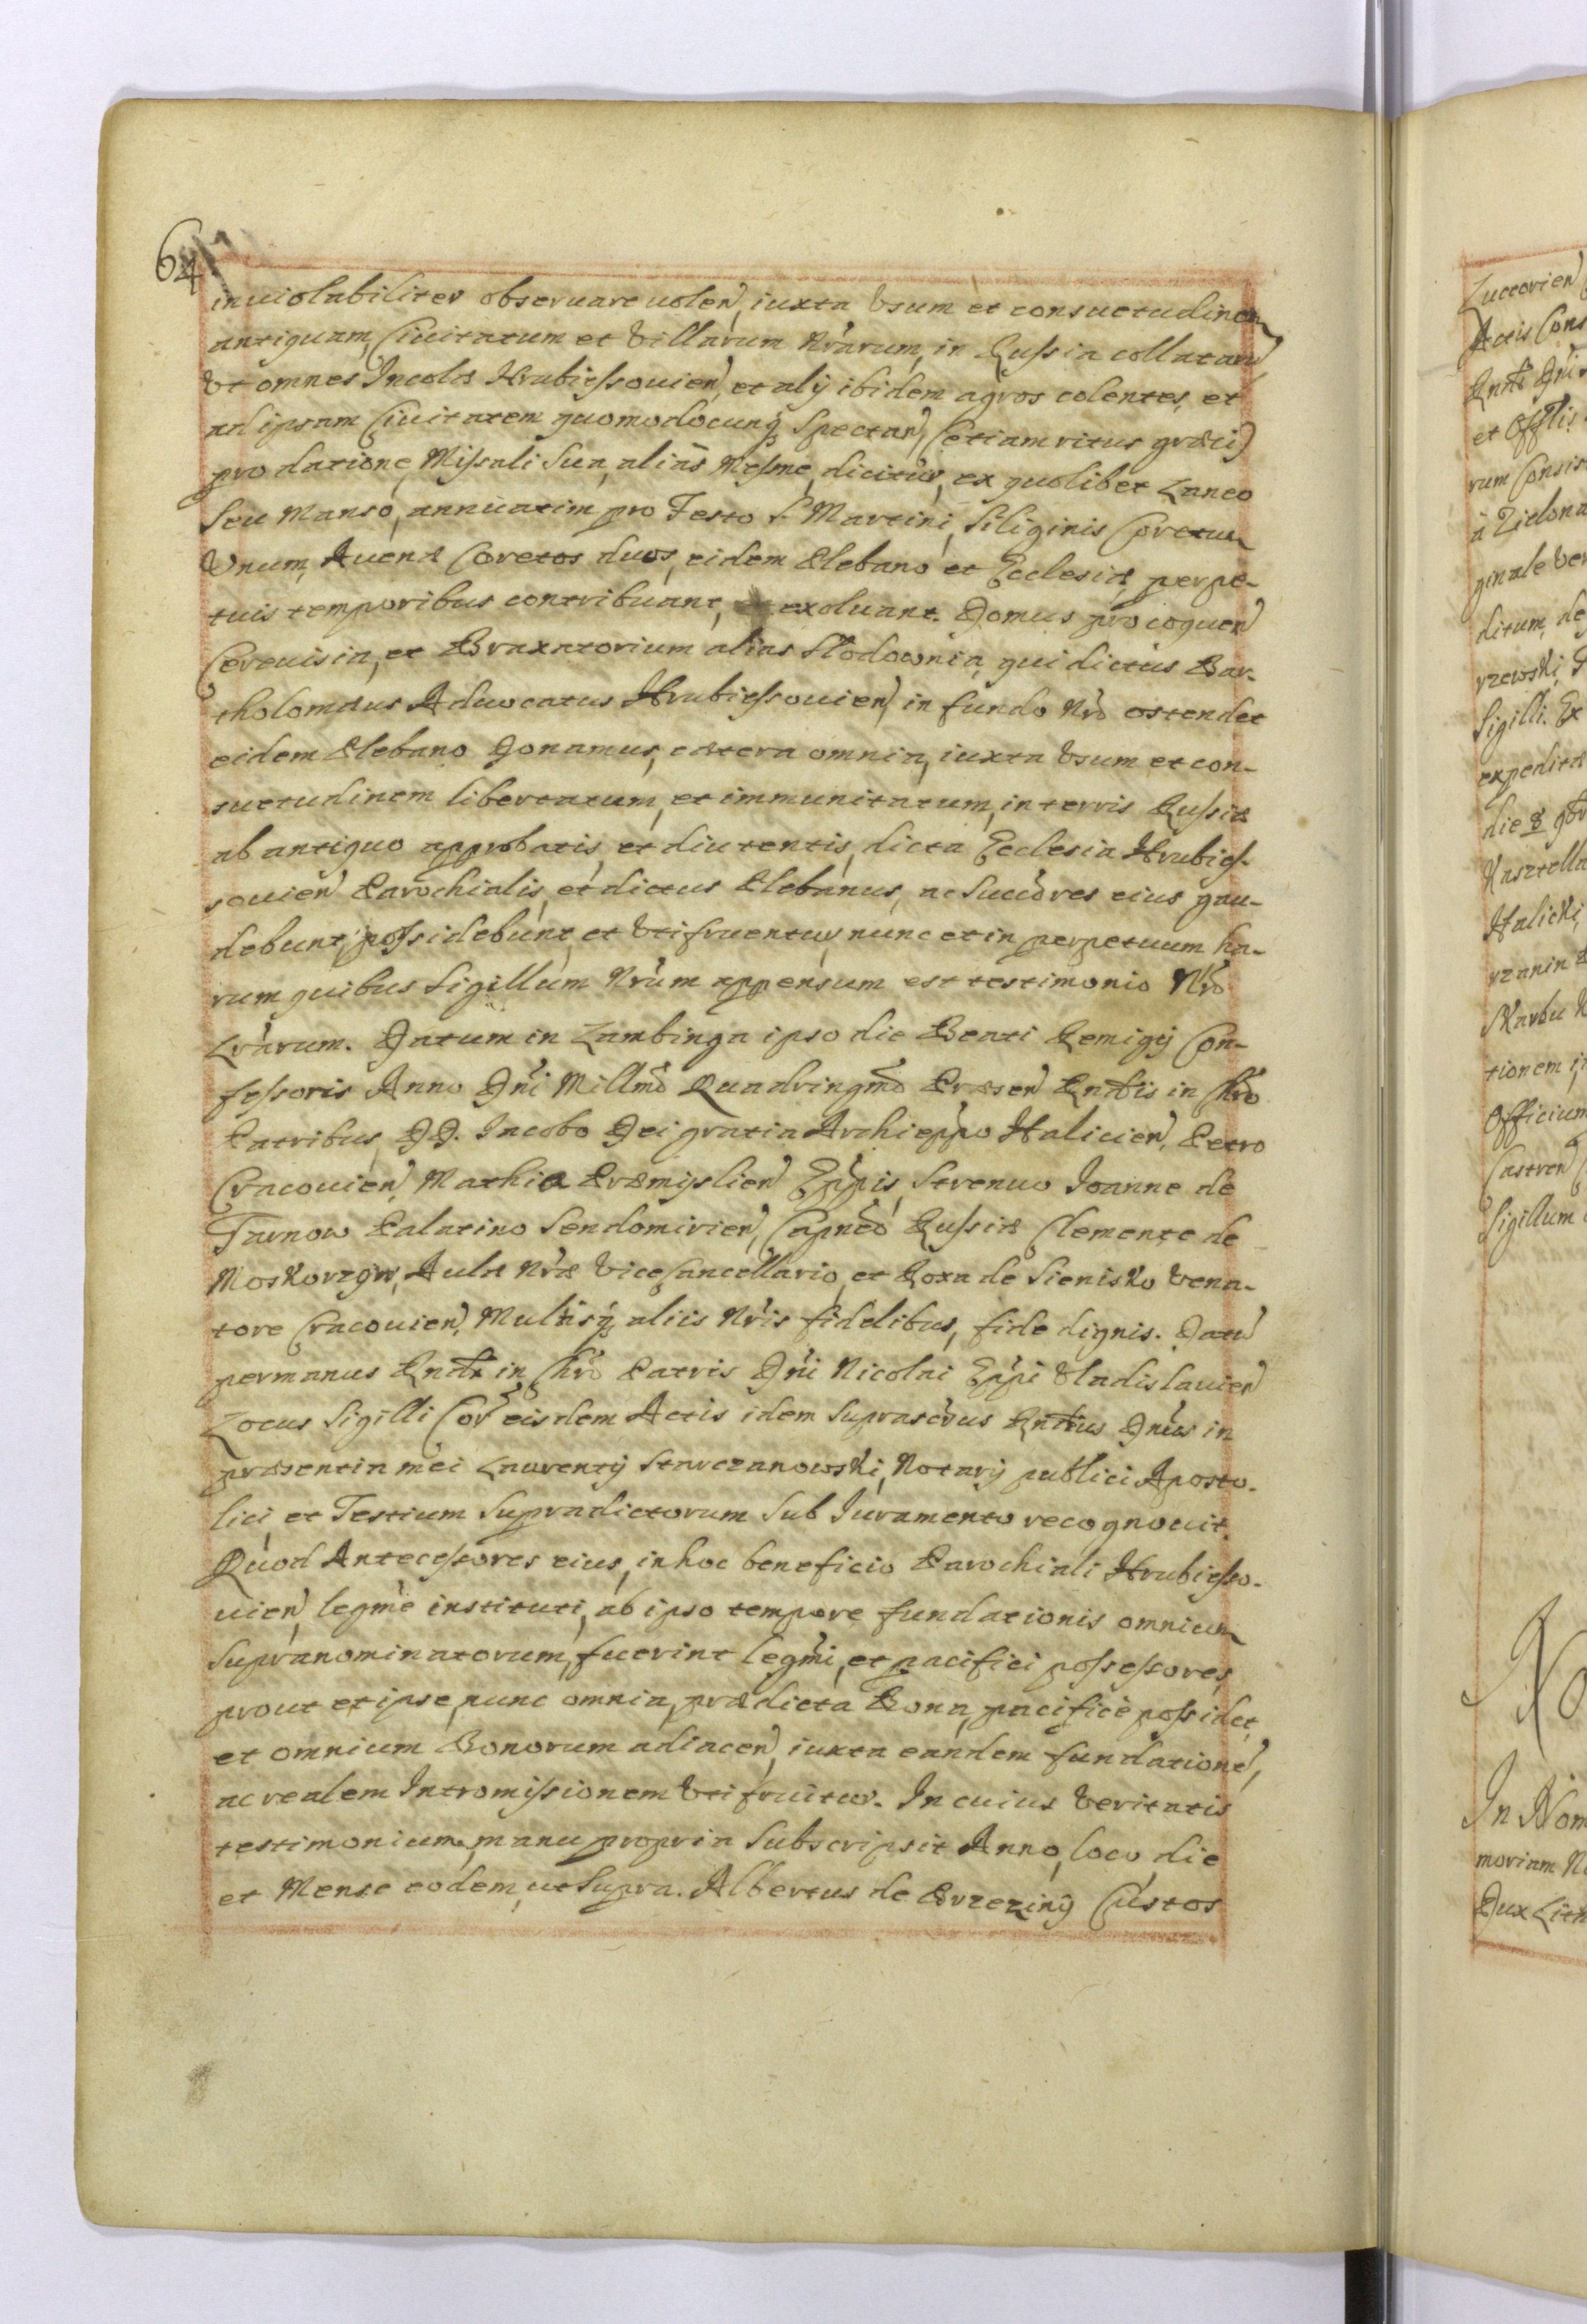 64
inuiolabiliter obseruare uolen, iuxta Vsum et consuetudinem
antiquam, Ciuitatum et Villarum Nrarum, in Russia collatam
Vt omnes Incolæ Hrubiessouien, et alÿ ibidem agros colentes, et
ad ipsam Ciuitatem quomodocunq Spectan, (etiam ritus græci)
pro datione Missali Sua, alias Mesme dicitur, ex quolibet Laneo
Seu Manso, annuatim pro Festo S. Martini, Siliginis Coretum
Vnum, Auenæ Coretos duos, eidem Plebano et Ecclesiæ, perpe-
tuis temporibus contribuant, et exoluant. Domus pro coquen
Cereuisia, et Braxatorium alias Słodownia, qui dictus Bar-
tholomæus Aduocatus Hrubiessouien, in fundo Nro ostendet
eidem Plebano Donamus, cætera omnia, iuxta Vsum et con-
suetudinem libertatum, et immunitatum, in terris Russiæ
ab antiquo approbatis, et diu tentis, dicta Ecclesia Hrubies-
souien Parochialis, et dictus Plebanus, ac Succores eius gau-
debunt, possidebunt, et Vtifruentur, nunc et in perpetuum ha-
rum quibus Sigillum Nrum appensum est testimonio Nro
Lrarum. Datum in Lambinga ipso die Beati Remigÿ Con-
fessoris Anno Dni Millmo Quadringmo Præsen Rndis in Chro
Patribus, DD. Iacobo Dei gratia Archieppo Halicien, Petro
Cracouien, Mathia Præmyslien Eppis, Strenuo Ioanne de
Tarnow Palatino Sendomirien, Capneo Russiæ Clemente de
Moskorzew, Aulæ Nræ ViceCancellario, et Roxa de Siensko Vena-
tore Cracouien, Multisq aliis Nris fidelibus, fide dignis. Datu
per manus Rndi in Chro Patris Dni Nicolai Eppi Vladislauien
Locus Sigilli Cor eisdem Actis idem Suprascrus Rndus Dnus in
præsentia mei Laurentÿ Starczanowski, Notarÿ publici Aposto-
lici, et Testium Supradictorum Sub Iuramento recognouit.
Quod Antecessores eius, in hoc beneficio Parochiali Hrubiesso-
uien, legme instituti, ab ipso tempore fundationis omnium
Supranominatorum, fuerint legmi, et pacifici possessores,
prout et ipse, nunc omnia, prædicta Bona, pacifice possidet,
et omnium Bonorum adiacen, iuxta eandem fundatione,
ac realem Intromissionem Vtifruitur. In cuius Veritatis
testimonium, manu propria Subscripsit Anno, loco die
et Mense eodem, ut Supra. Albertus de Brzezinÿ Custos